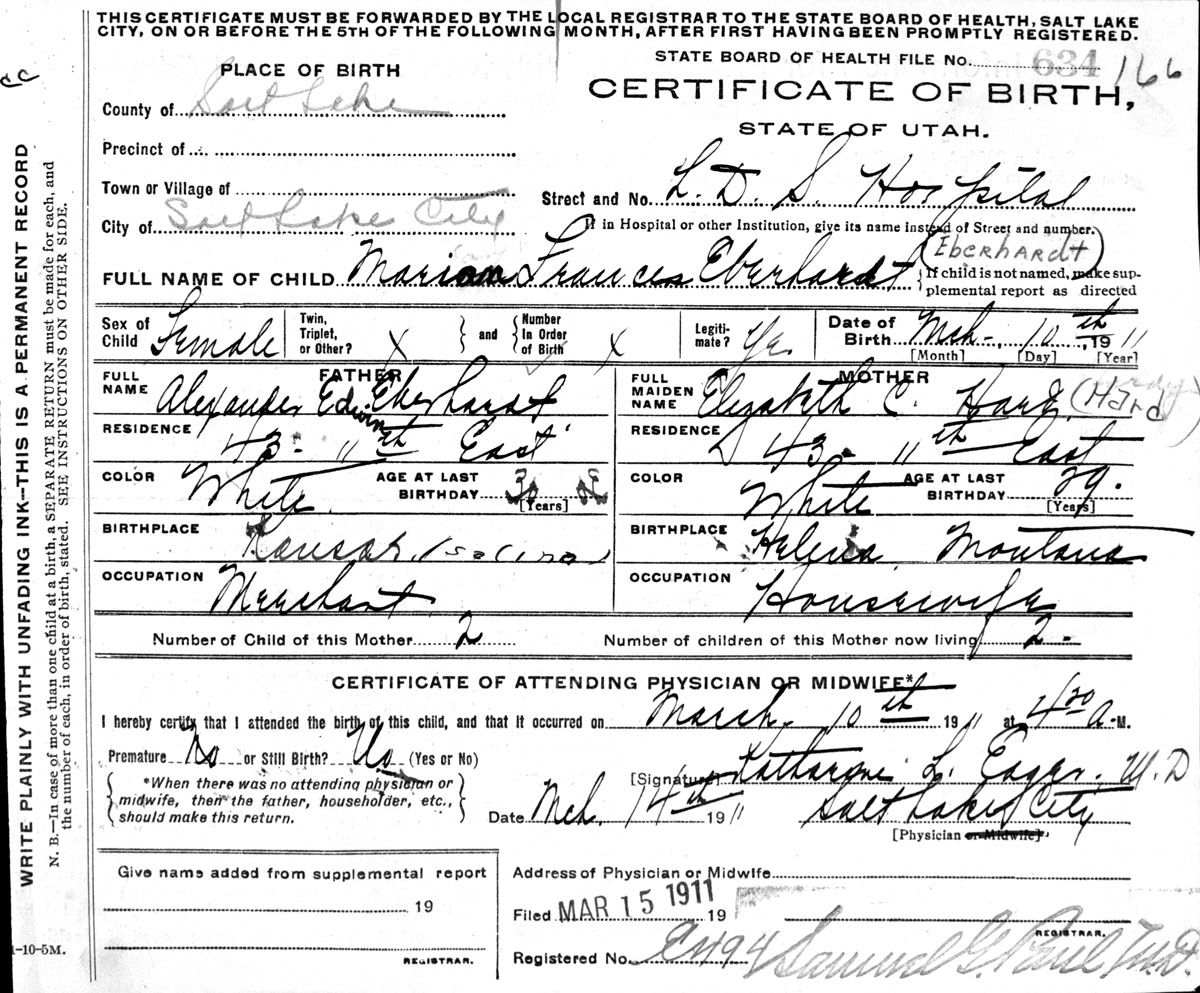 THIS CERTIFICATE MUST BE FORWARDED BY THE LOCAL REGISTRAR TO THE STATE BOARD OF HEALTH, SALT LAKE
CITY, ON OR BEFORE THE 5TH OF THE FOLLOWING MONTH, AFTER FIRST HAVING BEEN PROMPTLY REGISTERED.
STATE BOARD OF HEALTH FILE No. 634 166
PLACE OF BIRTH
CERTIFICATE OF BIRTH,
STATE OF UTAH.
County of Salt Lake
Precinct of
Town or Village of
Street and No. L. D. S. Hospital
City of Salt Lake City
If in Hospital or other Institution, give its name instead of Street and number.
(Eberhardt)
FULL NAME OF CHILD Marion Frances Eberhardt
If child is not named, make sup-
plemental report as directed
Sex of Child Female
Twin, Triplet, or Other? X and Number In Order of Birth X
Legiti- mate? Yes
Date of Birth Mch. 10th 1911
[Month] [Day] [Year]
FATHER
FULL NAME Alexander Edwin Eberhardt
RESIDENCE 43 - 11th East
COLOR White
AGE AT LAST BIRTHDAY
[Years]
BIRTHPLACE Kansas (Salina)
OCCUPATION Merchant
MOTHER
FULL MAIDEN NAME Elizabeth C. Hard (Hard)
RESIDENCE 43 - 11th East
COLOR White
AGE AT LAST BIRTHDAY 29.
[Years]
BIRTHPLACE Helena Montana
OCCUPATION Housewife
Number of Child of this Mother 2
Number of children of this Mother now living 2 -
CERTIFICATE OF ATTENDING PHYSICIAN OR MIDWIFE*
I hereby certify that I attended the birth of this child, and that it occurred on March 10th 1911 at 4 30 A-M.
Premature No or Still Birth? No (Yes or No)
*When there was no attending physician or
midwife, then the father, householder, etc.,
should make this return.
[Signature] Katharine L. Eager, M.D
Date Mch. 14th 1911 Salt Lake City
[Physician or Midwife]
Give name added from supplemental report
19
REGISTRAR.
Address of Physician or Midwife
Filed MAR 15 1911 19
REGISTRAR.
Registered No. E494 Samuel G. Paul M.D.
WRITE PLAINLY WITH UNFADING INK—THIS IS A PERMANENT RECORD
N. B.—In case of more than one child at a birth, a SEPARATE RETURN must be made for each, and
the number of each, in order of birth, stated. SEE INSTRUCTIONS ON OTHER SIDE.
1-10-5M.